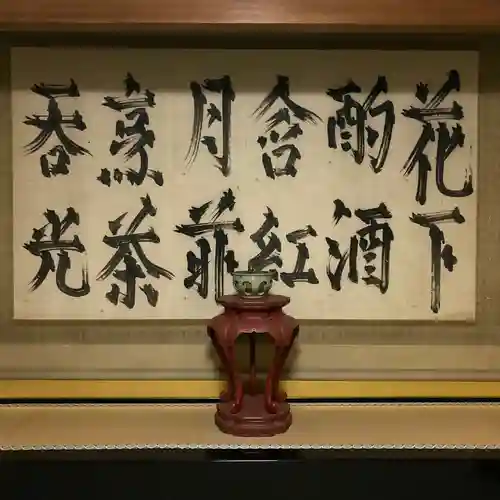 花下
酌酒
含紅
月前
烹茶
吞光